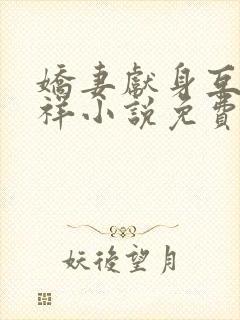 嬌妻獻身互
祥小說免費
妖後望月